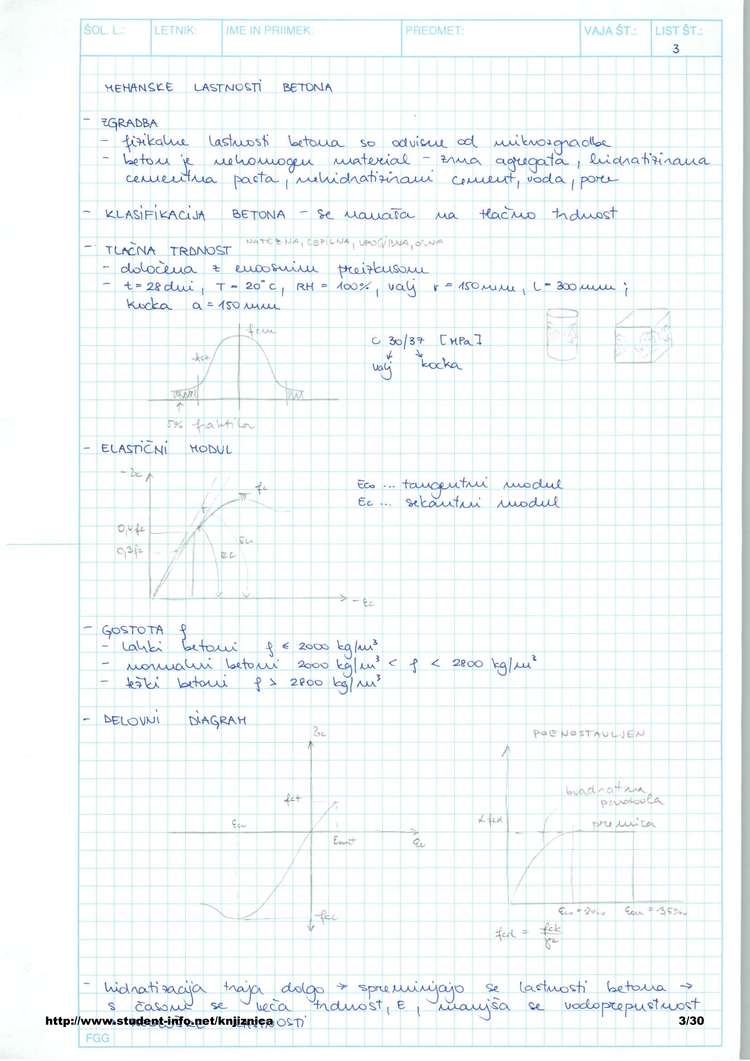 ŠOL. L.: LETNIK: IME IN PRIIMEK: PREDMET: VAJA ŠT.: LIST ŠT.:
3
MEHANSKE LASTNOSTI BETONA
- ZGRADBA
- fizikalne lastnosti betona so odvisne od mikrozgradbe
- beton je nehomogen material - zrna agregata, hidratizirana
cementna pasta, nehidratizirani cement, voda, pore
- KLASIFIKACIJA BETONA - se nanaša na tlačno trdnost
NATEZNA, CEPILNA, UPOGIBNA, OSNA
- TLAČNA TRDNOST
- določena z enoosnim preizkusom
- t = 28 dni, T = 20°C, RH = 100%, valj r = 150 mm, L = 300 mm;
kocka a = 150 mm
fcm
fck
C 30/37 [MPa]
valj kocka
5% fraktila
- ELASTIČNI MODUL
fc
Eco ... tangentni modul
Ec ... sekantni modul
0,4fc
0,3fc
- GOSTOTA ρ
- lahki betoni ρ ≤ 2000 kg/m³
- normalni betoni 2000 kg/m³ < ρ < 2800 kg/m³
- težki betoni ρ > 2800 kg/m³
- DELOVNI DIAGRAM
POENOSTAVLJEN
fct
kvadratna
parabola
premica
α fcd
εc
fcc
fcd = fck/γc
- hidratizacija traja dolgo → spreminjajo se lastnosti betona →
s časom se veča trdnost, E, manjša se vodoprepustnost
http://www.student-info.net/knjiznica
3/30
FGG